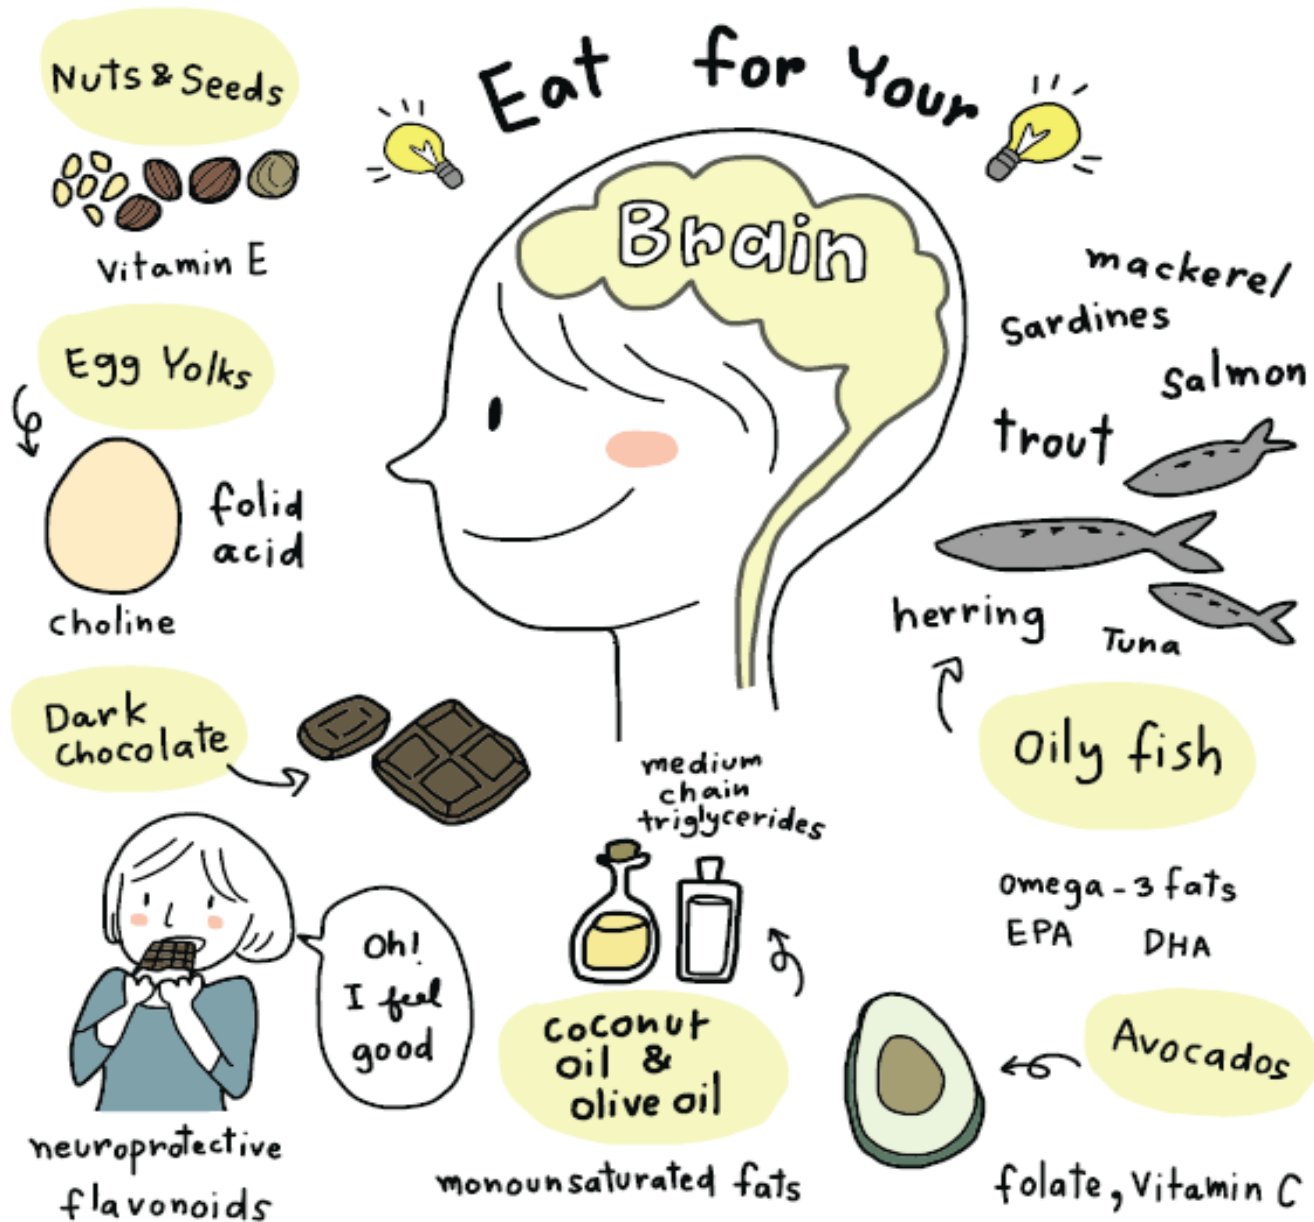 Eat for Your
Brain
Nuts & Seeds
Vitamin E
Egg Yolks
folid
acid
choline
Dark
chocolate
Oh!
I feel
good
neuroprotective
flavonoids
medium
chain
triglycerides
coconut
oil &
olive oil
monounsaturated fats
mackerel
Sardines
Salmon
trout
herring
Tuna
Oily fish
omega-3 fats
EPA DHA
Avocados
folate, Vitamin C